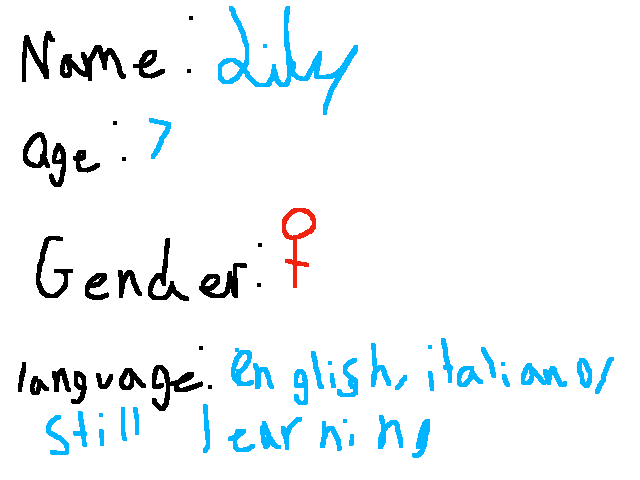 Name: Lily
age: 7
Gender: ♀
language: english, italiano/
still learning